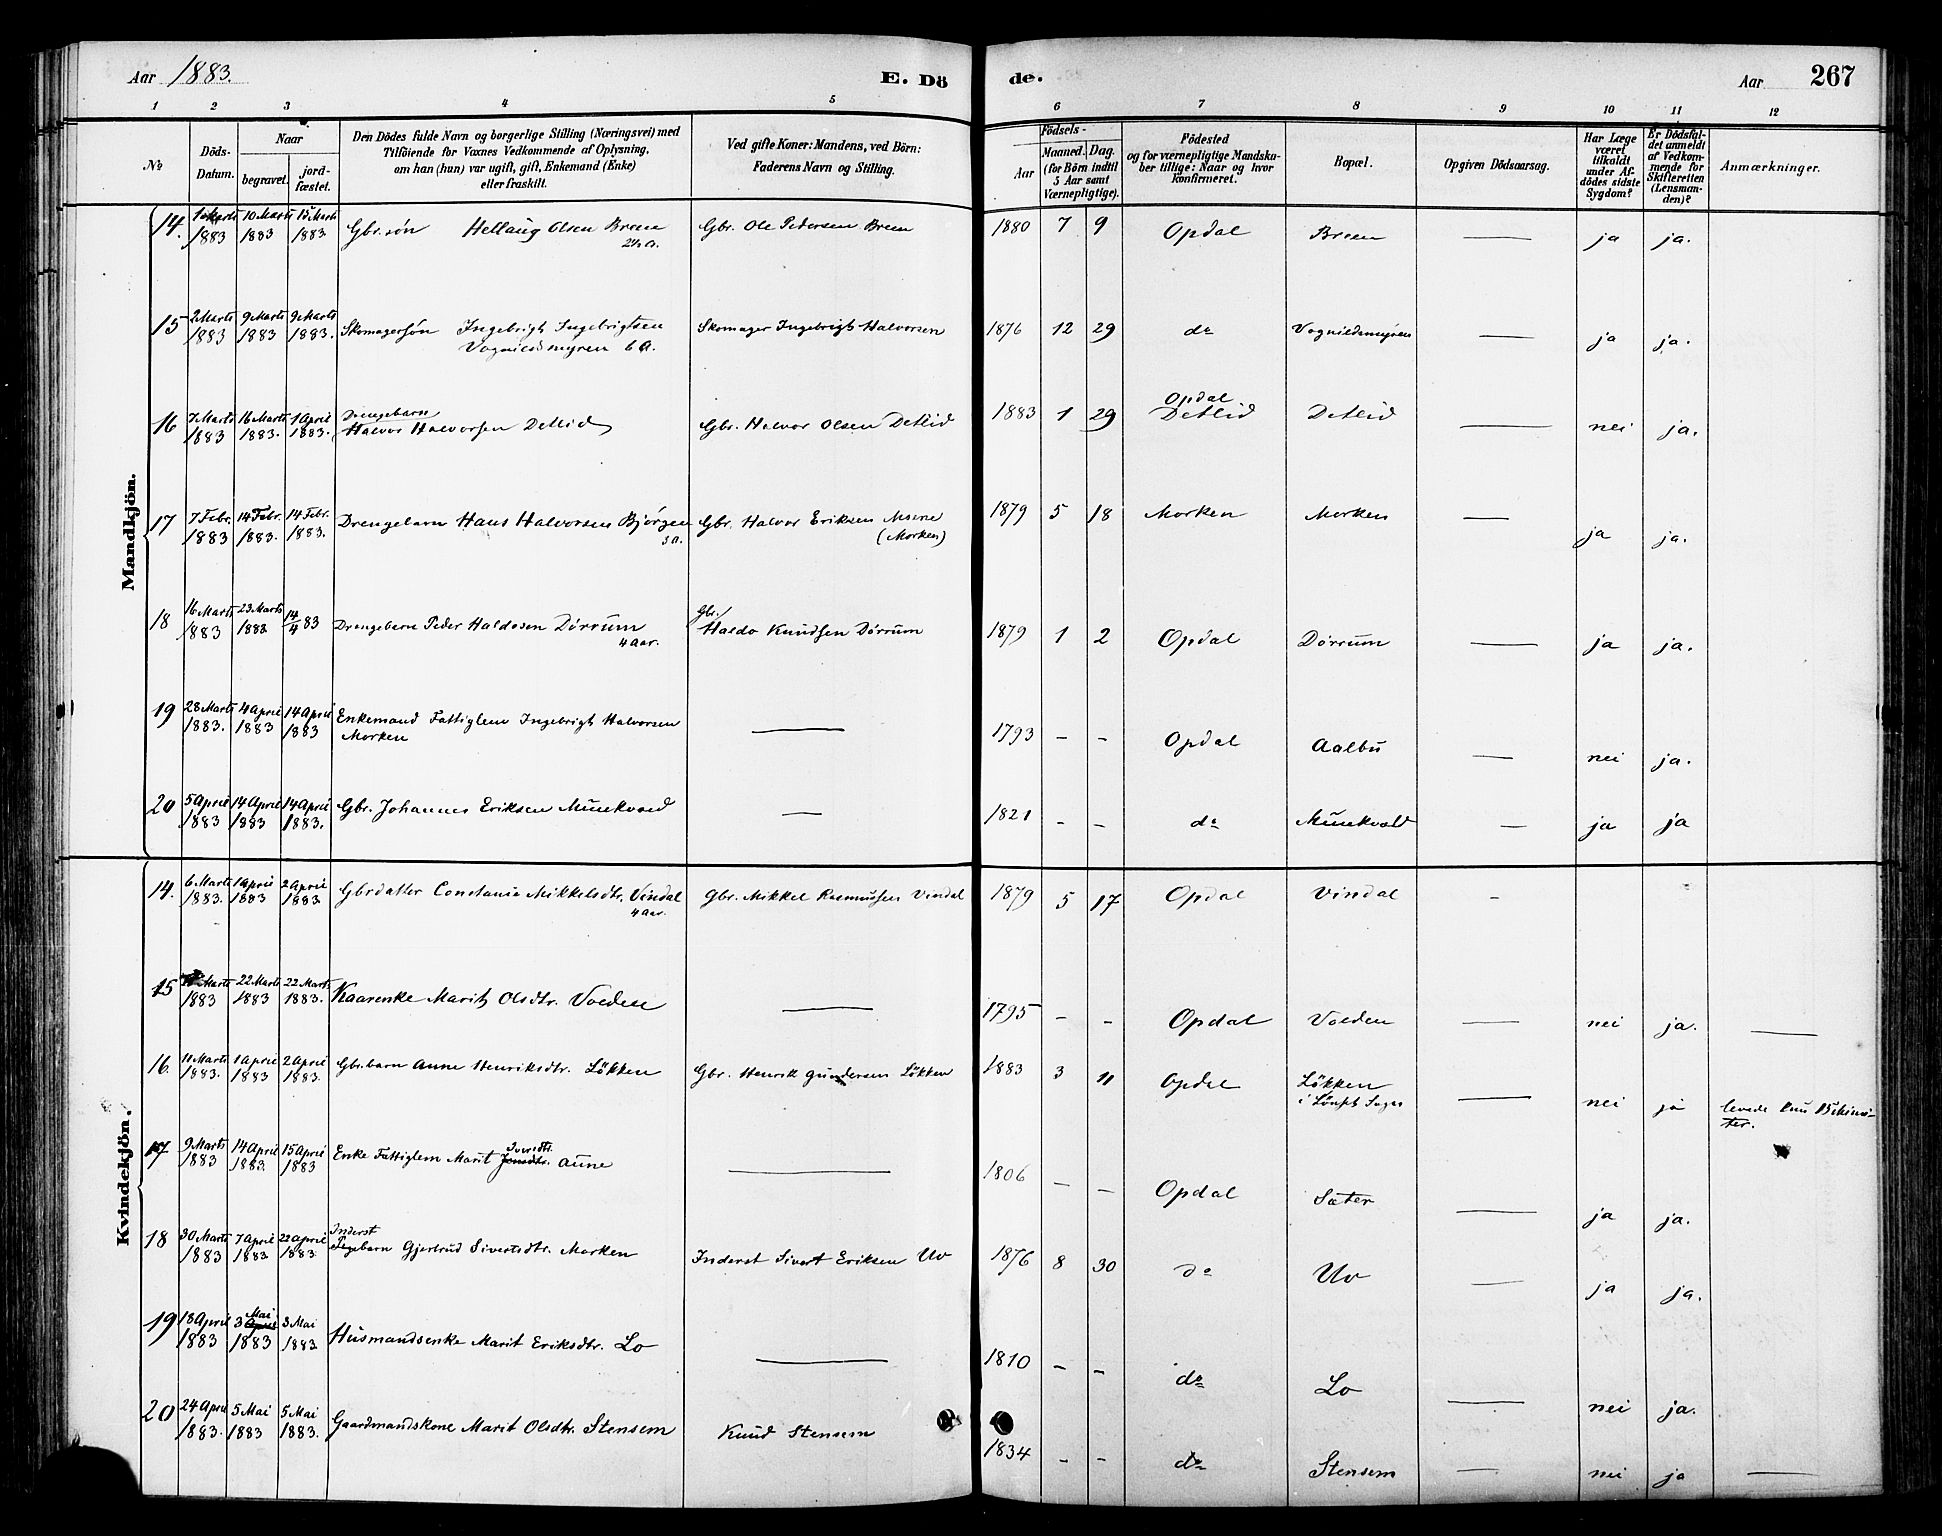 Aar 1883. E. Dö de. Aar 267
1 2 3 4 5 6 7 8 9 10 11 12
No
Döds-Datum.
Naar
begravet.
jordfæstet.
Den Dödes fulde Navn og borgerlige Stilling (Næringsvei) med
Tilföiende for Voxnes Vedkommende af Oplysning,
om han (hun) var ugift, gift, Enkemand (Enke)
eller fraskilt.
Ved gifte Koner: Mandens, ved Börn:
Faderens Navn og Stilling.
Födsels-
Aar
Maaned. Dag.
(for Börn indtil
5 Aar samt
Værnepligtige).
Födested
og for værnepligtige Mandska-
ber tillige: Naar og hvor
konfirmeret.
Bopæl.
Opgiven Dödsaarsag.
Har Læge
været
tilkaldt
under Af-
dödes sidste
Sygdom?
Er Dödsfal-
det anmeldt
af Vedkom-
mende for
Skifteretten
(Lensman-
den)?
Anmærkninger.
Mandkjön.
14. 1 Marts 1883 10 Marts 1883 15 Marts 1883 Gbr. søn Hellaug Olsen Breen 2½ a. Gbr. Ole Pedersen Breen 1880 7 9 Opdal Breen — ja ja.
15 2 Marts 1883 9 Marts 1883 9 Marts 1883. Skomagersøn Ingebrigt Ingebrigtsen Skomager Ingebrigt Halvorsen 1876 12 29 do Vognildsmyren — ja ja.
Vognildsmyren 6 A.
16 7 Marts 1883 16 Marts 1883. 1 April 1883. Drengebarn
Halvor Halvorsen Detlid Gbr. Halvor Olsen Detlid 1883 1 29 Opdal Detlid Detlid — nei ja.
17 7 Febr. 1883 14 Febr. 1883. 14 Febr. 1883. Drengebarn Hans Halvorsen Bjørgen 3 a. Gbr. Halvor Eriksen Msine (Morken) 1879 5 18 Morken Morken — ja ja.
18 16 Marts 1883 23 Marts 1883 14/4 83 Drengebarn Peder Haldosen Dörrum 4 Aar. Gbr. Haldo Knudsen Dörrum 1879 1 2 Opdal Dörrum — ja ja.
19 28 Marts 1883. 4 April 1883 14 April 1883 Enkemand Fattiglem Ingebrigt Halvorsen — 1793 - - Opdal Aalbu — nei ja.
Morken
20 5 April 1883 14 April 1883 14 April 1883. Gbr. Johannes Eriksen Munkvold — 1821 - - do Munkvold — ja ja
Kvindekjön.
14. 6 Marts 1883. 1 April 1883 2 April 1883 Gbrdatter Constania Mikkelsdtr. Vindal 4 Aar. Gbr. Mikkel Rasmussen Vindal 1879 5 17 Opdal Vindal -
15 Marts 1883 22 Marts 1883 22 Marts 1883. Kaarenke Marit Olsdtr. Volden — 1795 - - Opdal Volden — nei ja. —
16. 11 Marts 1883. 1 April 1883 2 April 1883. Gbr.barn Anne Henriksdtr. Lökken Gbr. Henrik Gundersen Lökken 1883 3 11 Opdal Lökken — nei ja levede kun
i Lönset Sogn
17 9 Marts 1883 14 April 1883. 15 April 1883 Enke Fattiglem Marit Jonsdtr. Iversdtr. Aune — 1806 - - Opdal Sæter — ja ja.
18 30 Marts 1883 7 April 1883 22 April 1883 Inderst
Pigebarn Gjertrud Sivertsdtr. Morken Inderst Sivert Eriksen Uv 1876 8 30 do Uv — ja ja.
19 18 April 1883 3 April Mai 1883 3 Mai 1883 Husmandsenke Marit Eriksdtr. Lo — 1810 - - do Lo — nei ja.
20 24 April 1883. 5 Mai 1883 5 Mai 1883. Gaardmandskone Marit Olsdtr. Stensem Knud Stensem 1834 - - do Stensem — nei ja —